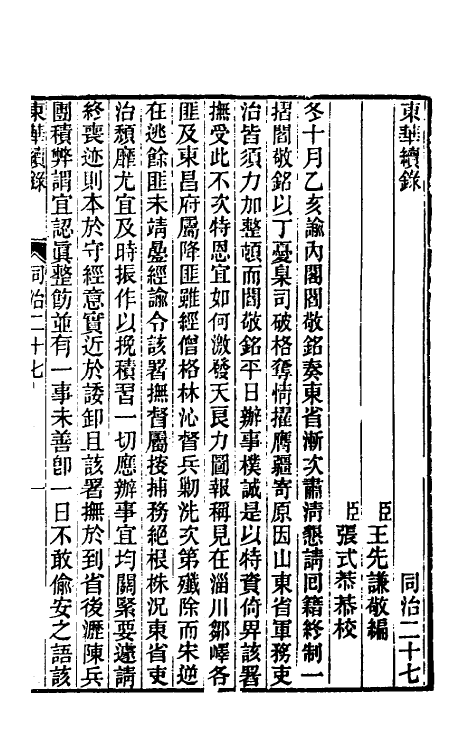 東華續錄 同治二十七
臣王先謙敬編
臣張式恭恭校
冬十月乙亥諭內閣閻敬銘奏東省漸次肅清懇請回籍終制一
摺閻敬銘以丁憂臬司破格奪情擢膺疆寄原因山東省軍務吏
治皆須力加整頓而閻敬銘平日辦事樸誠是以特資倚畀該署
撫受此不次特恩宜如何激發天良力圖報稱見在淄川鄒嶧各
匪及東昌府屬降匪雖經僧格林沁督兵勦洗次第殲除而朱逆
在逃餘匪未靖曡經諭令該署撫督屬搜捕務絕根株況東省吏
治頹靡尤宜及時振作以挽積習一切應辦事宜均關緊要遽請
終喪迹則本於守經意實近於諉卸且該署撫於到省後瀝陳兵
團積弊謂宜認眞整飭並有一事未善卽一日不敢偷安之語該
東華續錄 同治二十七 一